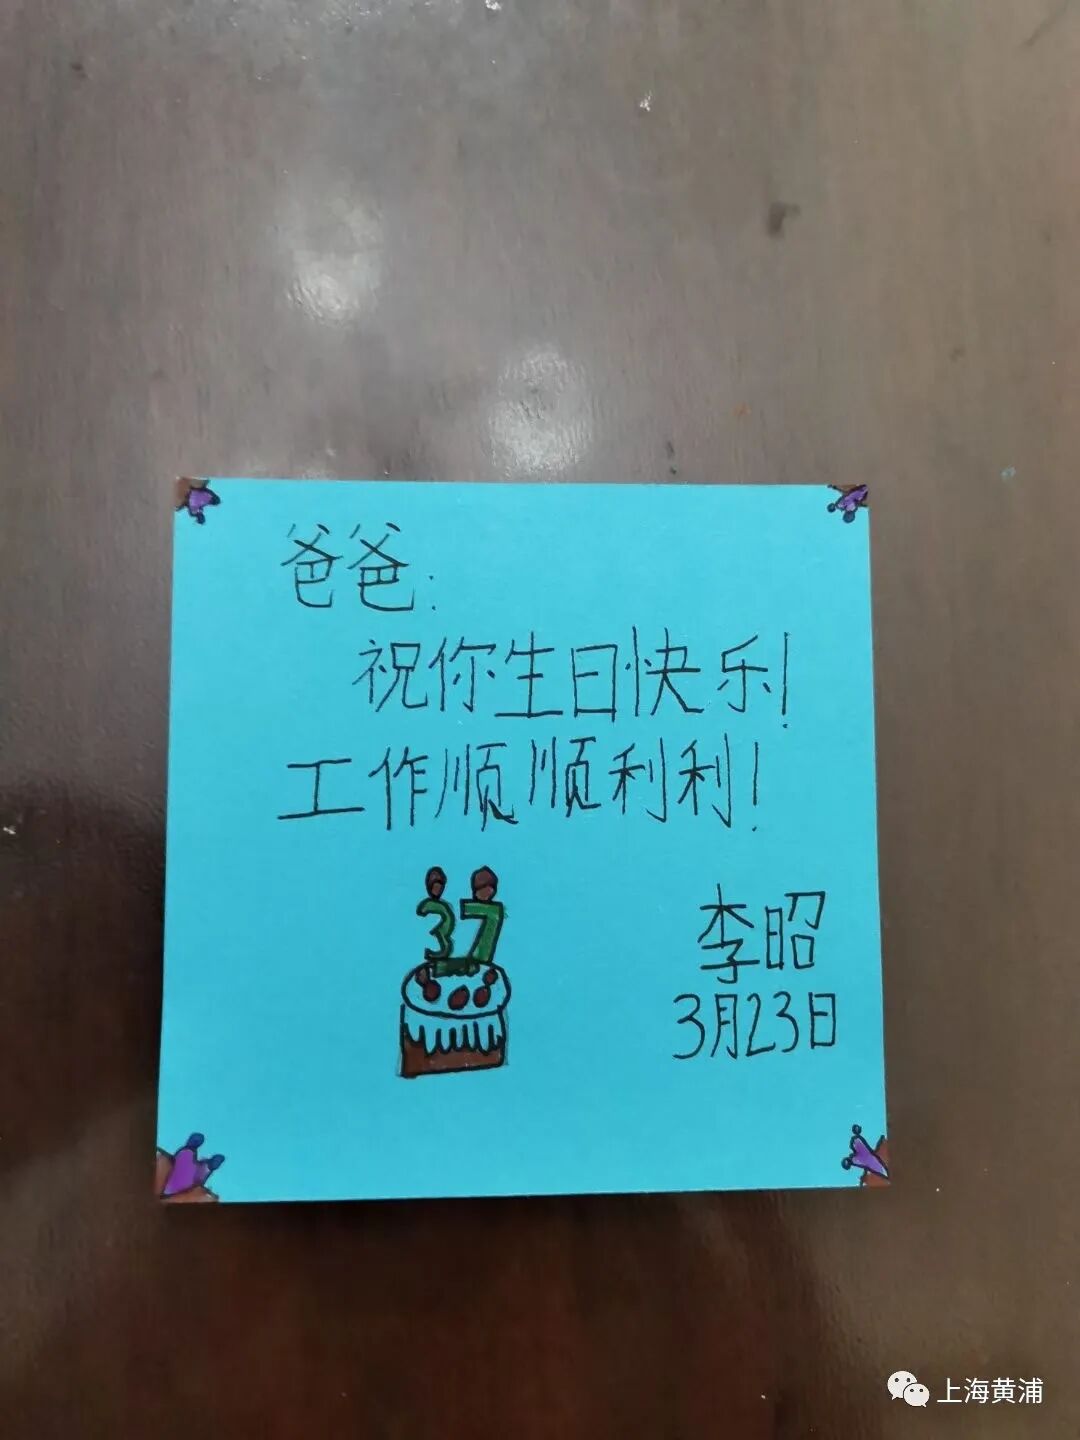 爸爸:
祝你生日快乐!
工作顺顺利利!
37
李昭
3月23日
上海黄浦